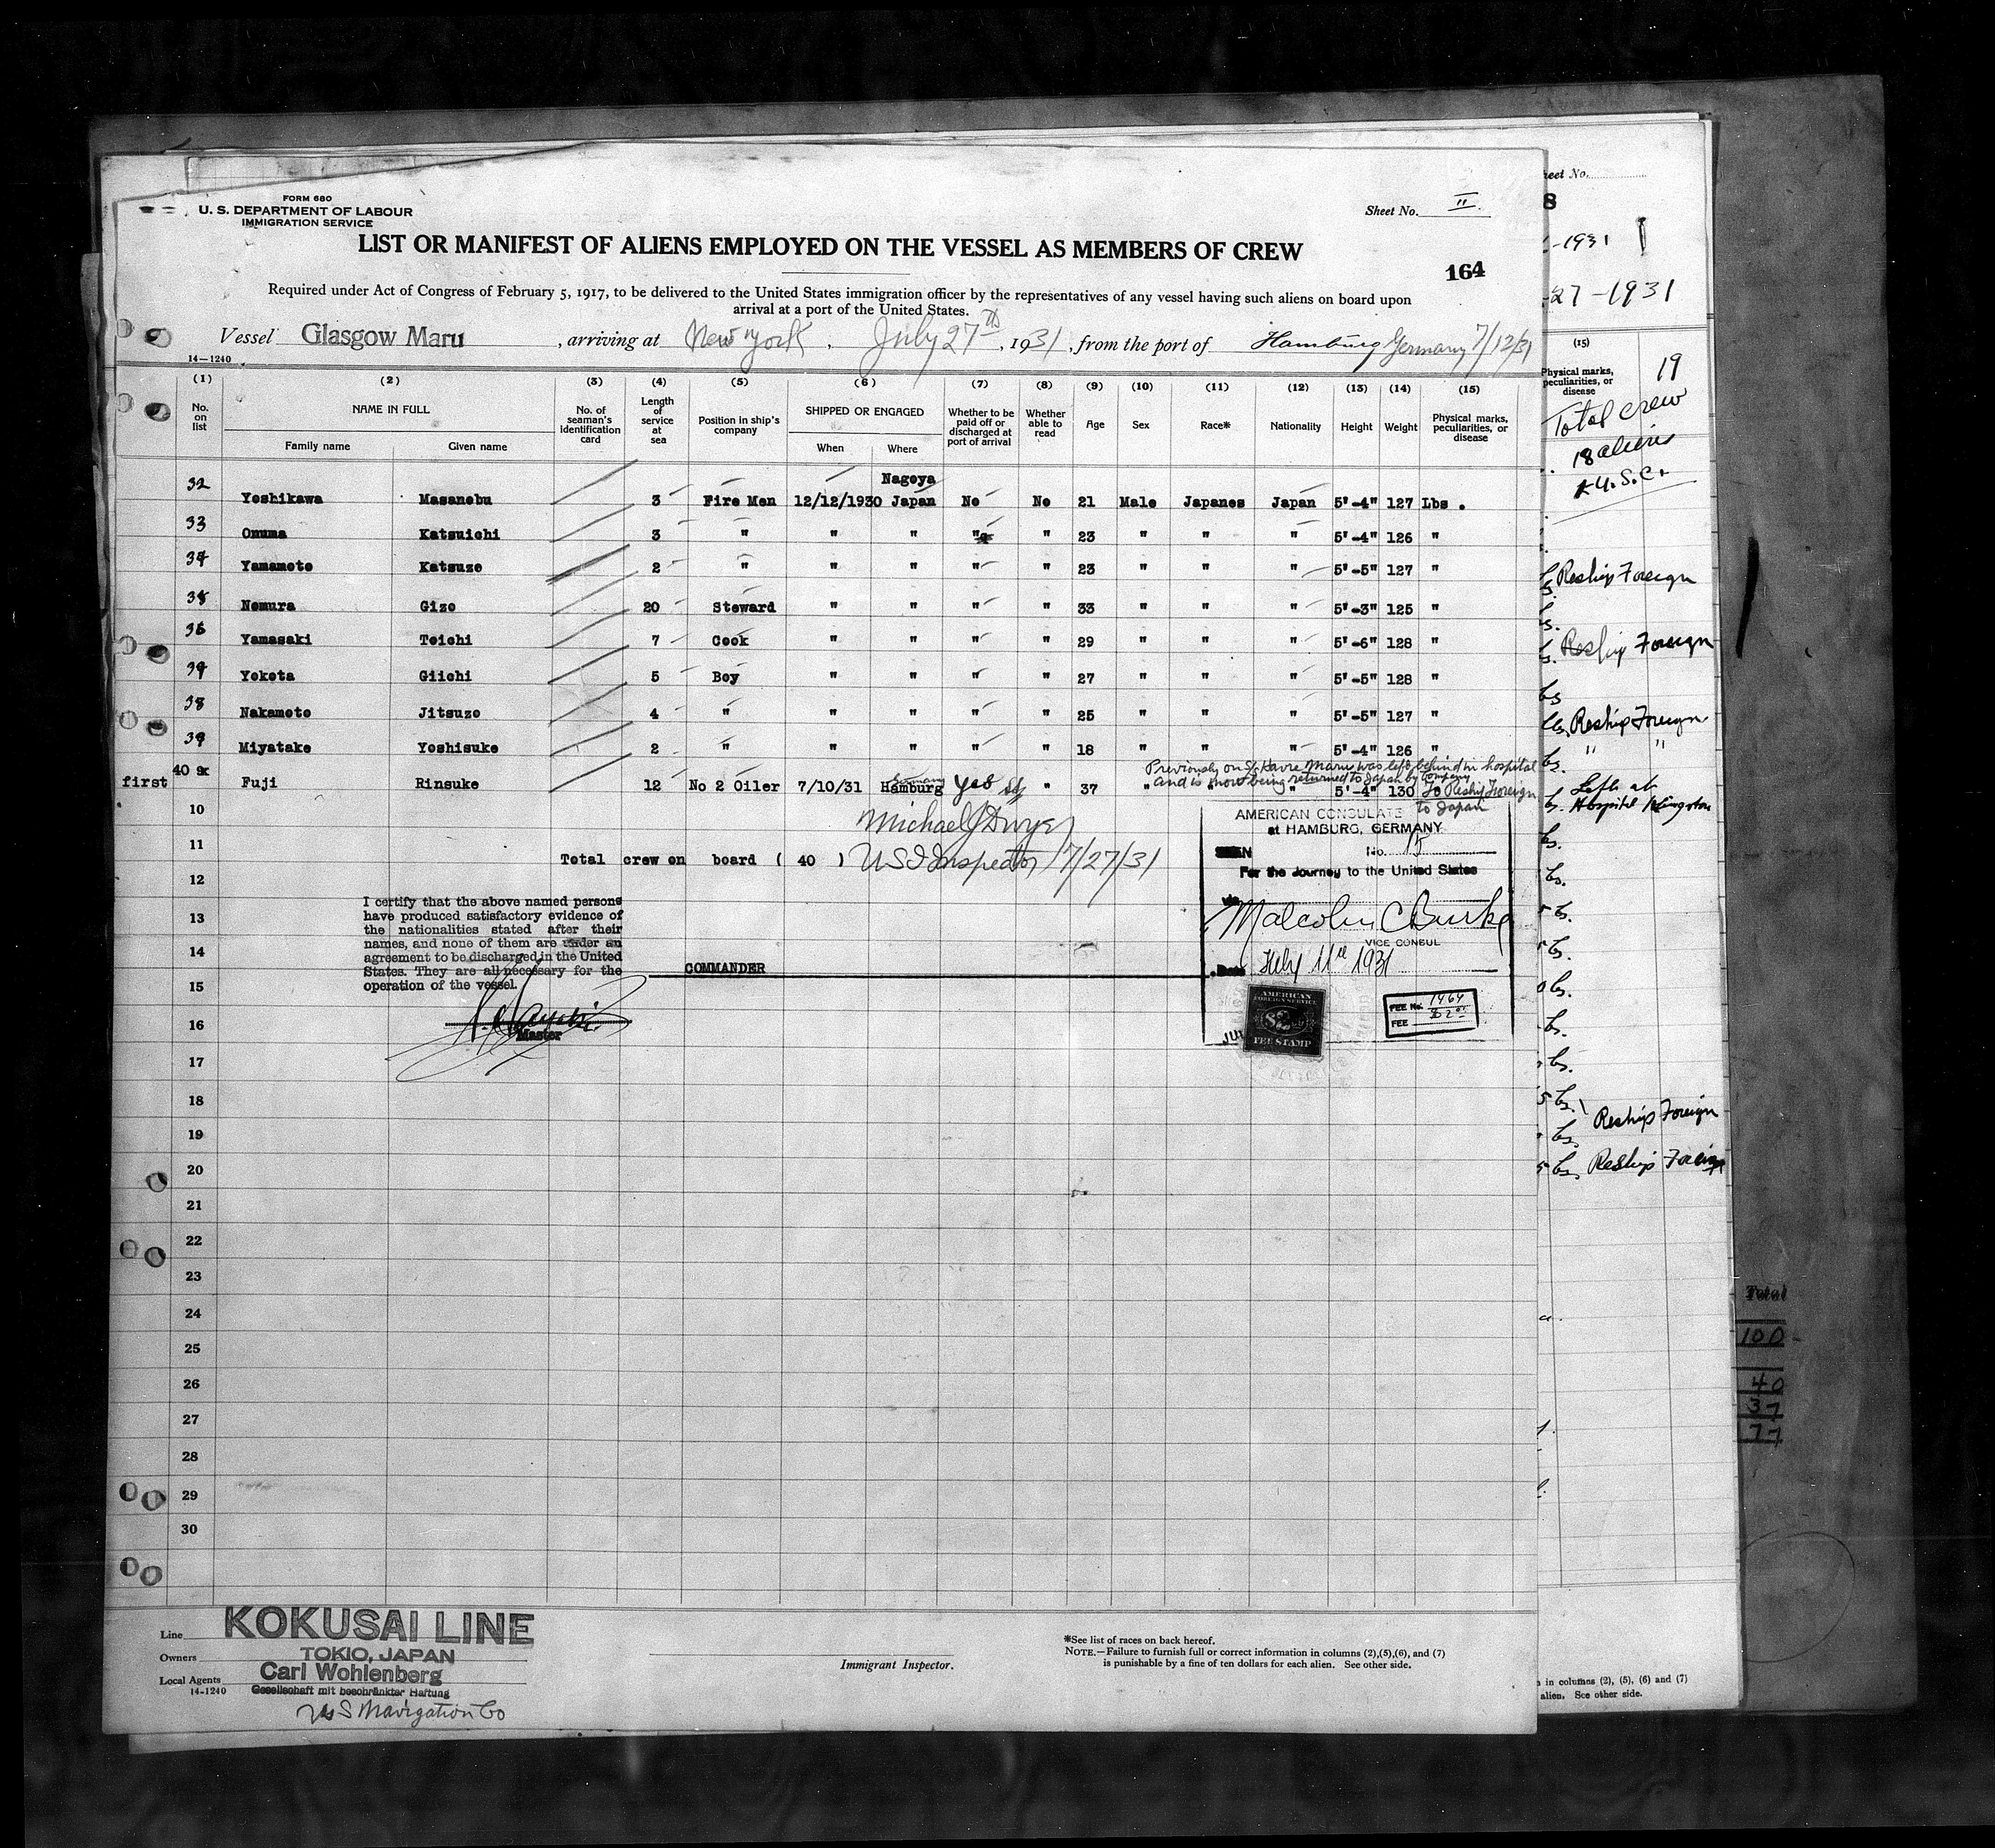 FORM 680
U. S. DEPARTMENT OF LABOUR
IMMIGRATION SERVICE
Sheet No. II
LIST OR MANIFEST OF ALIENS EMPLOYED ON THE VESSEL AS MEMBERS OF CREW
164
Required under Act of Congress of February 5, 1917, to be delivered to the United States immigration officer by the representatives of any vessel having such aliens on board upon
arrival at a port of the United States.
Vessel Glasgow Maru, arriving at New York, July 27th, 1931, from the port of Hamburg Germany 7/12/31
14—1240
(1) (2) (3) (4) (5) (6) (7) (8) (9) (10) (11) (12) (13) (14) (15)
No. on list
NAME IN FULL
Family name Given name
No. of seaman's identification card
Length of service at sea
Position in ship's company
SHIPPED OR ENGAGED
When Where
Whether to be paid off or discharged at port of arrival
Whether able to read
Age Sex Race* Nationality Height Weight
Physical marks, peculiarities, or disease
Nagoya
32 Yoshikawa Masanobu 3 Fire Men 12/12/1930 Japan No No 21 Male Japanes Japan 5'-4" 127 Lbs .
33 Onuma Katsuichi 3 " " " " " 23 " " " 5'-4" 126 "
34 Yamamoto Katsuzo 2 " " " " " 23 " " " 5'-5" 127 "
35 Nomura Gizo 20 Steward " " " " 33 " " " 5'-3" 125 "
36 Yamasaki Teichi 7 Cook " " " " 29 " " " 5'-6" 128 "
37 Yokota Giichi 5 Boy " " " " 27 " " " 5'-5" 128 "
38 Nakamoto Jitsuzo 4 " " " " " 25 " " " 5'-5" 127 "
39 Miyatake Yoshisuke 2 " " " " " 18 " " " 5'-4" 126 "
Previously on S/ Havre Maru was left behind in hospital
and is now being returned to Japan by Company
Germany
first 40 Fuji Rinsuke 12 No 2 Oiler 7/10/31 Hamburg Yes " 37 " " " 5'-4" 130 To Reship Foreign
to Japan
10
Michael J Dwyer
11
Total crew on board ( 40 ) US I Inspector 7/27/31
12
AMERICAN CONSULATE
at HAMBURG, GERMANY
SEEN No. 15
For the Journey to the United States
via
Malcolm C Burke
VICE CONSUL
Date July 11th 1931
AMERICAN
FOREIGN SERVICE
$2
FEE STAMP
FEE No. 1464
FEE $2.00
I certify that the above named persons
have produced satisfactory evidence of
the nationalities stated after their
names, and none of them are under an
agreement to be discharged in the United
States. They are all necessary for the
operation of the vessel.
COMMANDER
Master
13
14
15
16
17
18
19
20
21
22
23
24
25
26
27
28
29
30
Line KOKUSAI LINE
Owners TOKIO, JAPAN
Local Agents Carl Wohlenberg
14-1240 Gesellschaft mit beschränkter Haftung
U S Navigation Co
Immigrant Inspector.
*See list of races on back hereof.
NOTE.—Failure to furnish full or correct information in columns (2),(5),(6), and (7)
is punishable by a fine of ten dollars for each alien. See other side.
heet No.
8
-1931
-27-1931
(15)
Physical marks,
peculiarities, or
disease
19
Total crew
18 aliens
U.S.C.
Reship Foreign
Reship Foreign
Reship Foreign
" "
Left at
Hospital Kingston
Reship Foreign
Reship Foreign
in columns (2), (5), (6) and (7)
alien. See other side.
Total
100
40
37
77